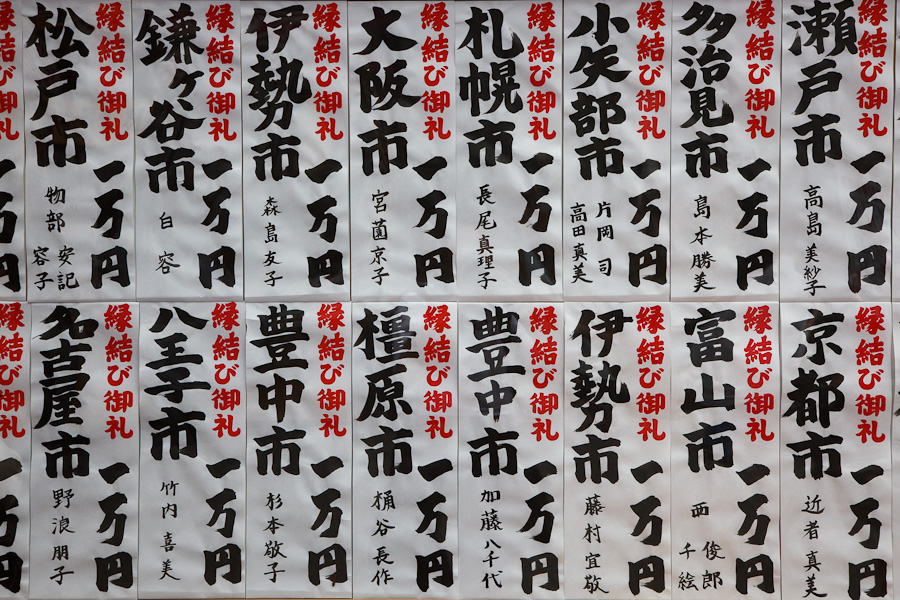 縁結び御礼
一万円
瀬戸市
高島美紗子
縁結び御礼
一万円
多治見市
島本勝美
縁結び御礼
一万円
小矢部市
片岡司
高田真美
縁結び御礼
一万円
札幌市
長尾真理子
縁結び御礼
一万円
大阪市
宮薗京子
縁結び御礼
一万円
伊勢市
森島友子
縁結び御礼
一万円
鎌ヶ谷市
白容
縁結び御礼
一万円
松戸市
物部安記
容子
縁結び御礼
一万円
縁結び御礼
一万円
京都市
近者真美
縁結び御礼
一万円
富山市
西俊郎
千絵
縁結び御礼
一万円
伊勢市
藤村宜敬
縁結び御礼
一万円
豊中市
加藤八千代
縁結び御礼
一万円
橿原市
桶谷長作
縁結び御礼
一万円
豊中市
杉本敬子
縁結び御礼
一万円
八王子市
竹内喜美
縁結び御礼
一万円
名古屋市
野浪朋子
縁結び御礼
一万円